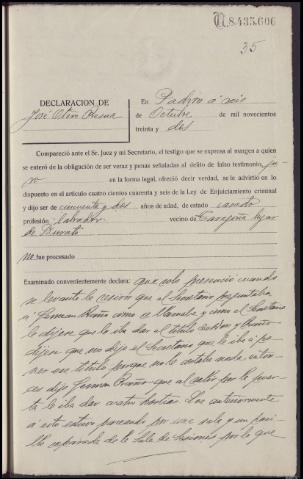 N.8.435.606
35
DECLARACION DE
José Otero
En Padrón á seis
de Octubre de mil novecientos
treinta y dos
Compareció ante el Sr. Juez y mi Secretario, el testigo que se expresa al margen a quien
se enteró de la obligación de ser veraz y penas señaladas al delito de falso testimonio,
en la forma legal, ofreció decir verdad, se le advirtió en lo
dispuesto en el artículo cuatro cientos cuarenta y seis de la Ley de Enjuiciamiento criminal
y dijo ser de cincuenta y dos años de edad, de estado casado
profesión labrador vecino de lugar
de
no fue procesado
Examinado convenientemente declara: que solo presenció cuando
se levantó la sesion que el Secretario preguntaba
a German como se llamaba y como el Secretario
le dijera que
dijera que no dijo el Secretario que le iba á
en su título porque no lo estaba
dijo German que al salir por la puerta
le iba dar cuatro hostias. Que anteriormente
á esto estuvo paseando por una sala y un pasillo
separado de la Sala de Sesiones por lo que